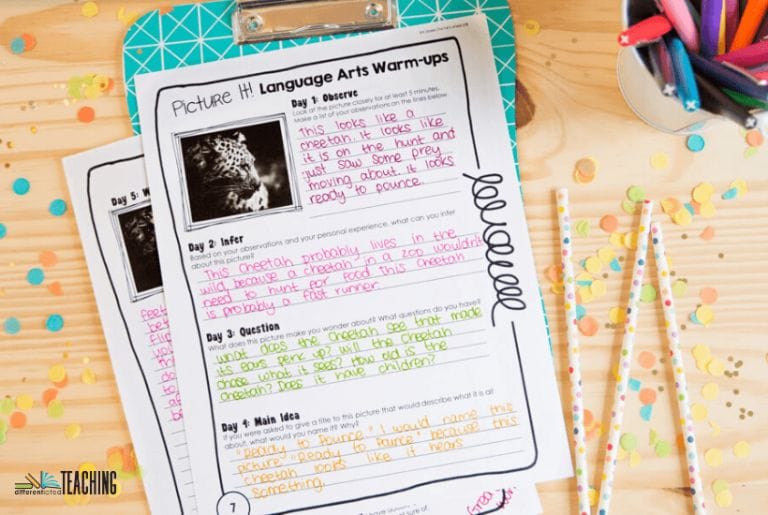 Picture It! Language Arts Warm-ups
Day 1: Observe
Look at the picture closely for at least 5 minutes.
Make a list of your observations on the lines below
This looks like a
cheetah. It looks like
it is on the hunt and
just saw some prey
moving about. It looks
ready to pounce.
Day 2: Infer
Based on your observations and your personal experience, what can you infer
about this picture?
This cheetah probably lives in the
wild, because a cheetah in a zoo wouldn't
need to hunt for food. This cheetah
is probably a fast runner.
Day 3: Question
What does this picture make you wonder about? What questions do you have?
What does the cheetah see that made
its ears perk up? Will the cheetah
chase what it sees? How old is the
cheetah? Does it have children?
Day 4: Main Idea
If you were asked to give a title to this picture that would describe what it is all
about, what would you name it? Why?
"Ready to Pounce" I would name this
picture "Ready to Pounce" because this
cheetah looks like it hears
something.
7
Day 5: W
differentiated TEACHING